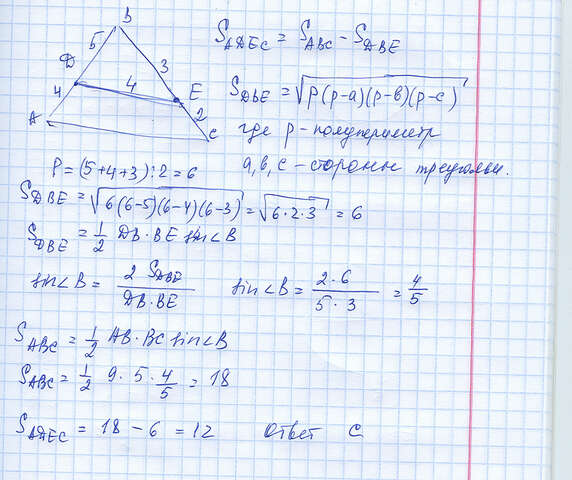 B
5
D
4
3
4
E
2
A
C
S_ADEC = S_ABC − S_DBE
S_DBE = √p(p-a)(p-b)(p-c)
где p - полупериметр
a, b, c - стороны треугольн.
P = (5+4+3):2 = 6
S_DBE = √6(6-5)(6-4)(6-3) = √6·2·3 = 6
S_DBE = 1/2 DB·BE sin∠B
sin∠B = 2 S_DBE / DB·BE sin∠B = 2·6 / 5·3 = 4/5
S_ABC = 1/2 AB·BC sin∠B
S_ABC = 1/2 9·5·4/5 = 18
S_ADEC = 18 − 6 = 12 Ответ C